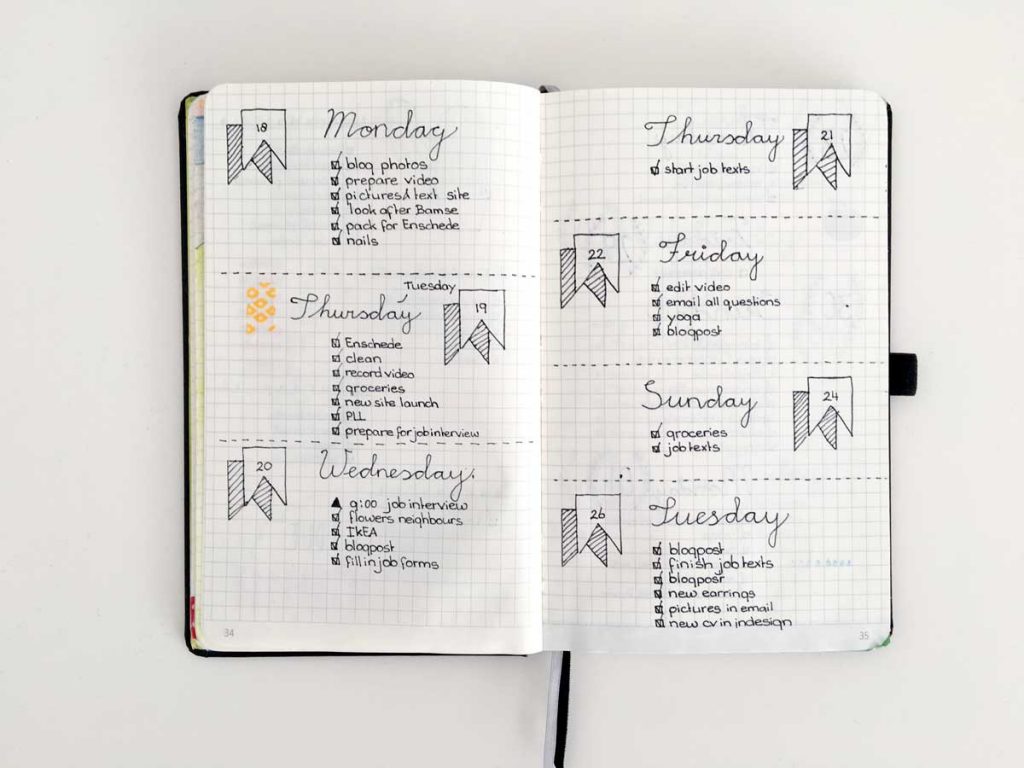 18
Monday
blog photos
prepare video
pictures & text site
look after Bamse
pack for Enschede
nails
Tuesday
Thursday
19
Enschede
clean
record video
groceries
new site launch
PLL
prepare for job interview
20
Wednesday
9:00 job interview
flowers neighbours
IKEA
blogpost
fill in job forms
34
Thursday
21
start job texts
22
Friday
edit video
email all questions
yoga
blogpost
Sunday
24
groceries
job texts
26
Tuesday
blogpost
finish job texts
blogpost
new earrings
pictures in email
new cv in indesign
35